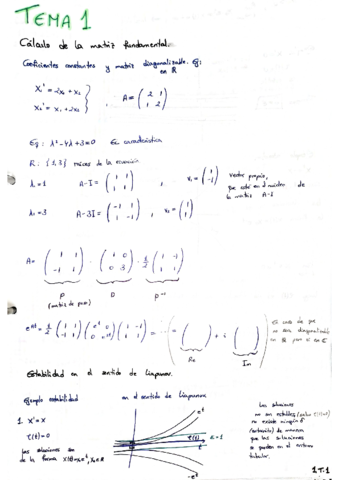 TEMA 1
Cálculo de la matriz fundamental.
Coeficientes constantes y matriz diagonalizable. Ej:
en R
x₁' = 2x₁ + x₂
x₂' = x₁ + 2x₂
, A = ( 2 1 / 1 2 )
Eq: λ² - 4λ + 3 = 0 Ec característica
R: {1, 3} raíces de la ecuación
λ = 1 A - I = ( 1 1 / 1 1 ) , x₁ = ( 1 / -1 ) Vector propio,
que está en el núcleo de
la matriz A - I
λ₂ = 3 A - 3I = ( -1 1 / 1 -1 ) , x₂ = ( 1 / 1 )
A = ( 1 1 / -1 1 ) · ( 1 0 / 0 3 ) · 1/2 ( 1 -1 / 1 1 )
P D P⁻¹
(matriz de paso)
Re Im
en R pero sí en C
Estabilidad en el sentido de Liapunov.
Ejemplo estabilidad en el sentido de Liapunov
1. x' = x
φ(t) = 0
Las soluciones son
de la forma
Las soluciones
no son estables
no existe ningún δ
de manera
que las soluciones
se queden en el entorno
tubular.
1T.1